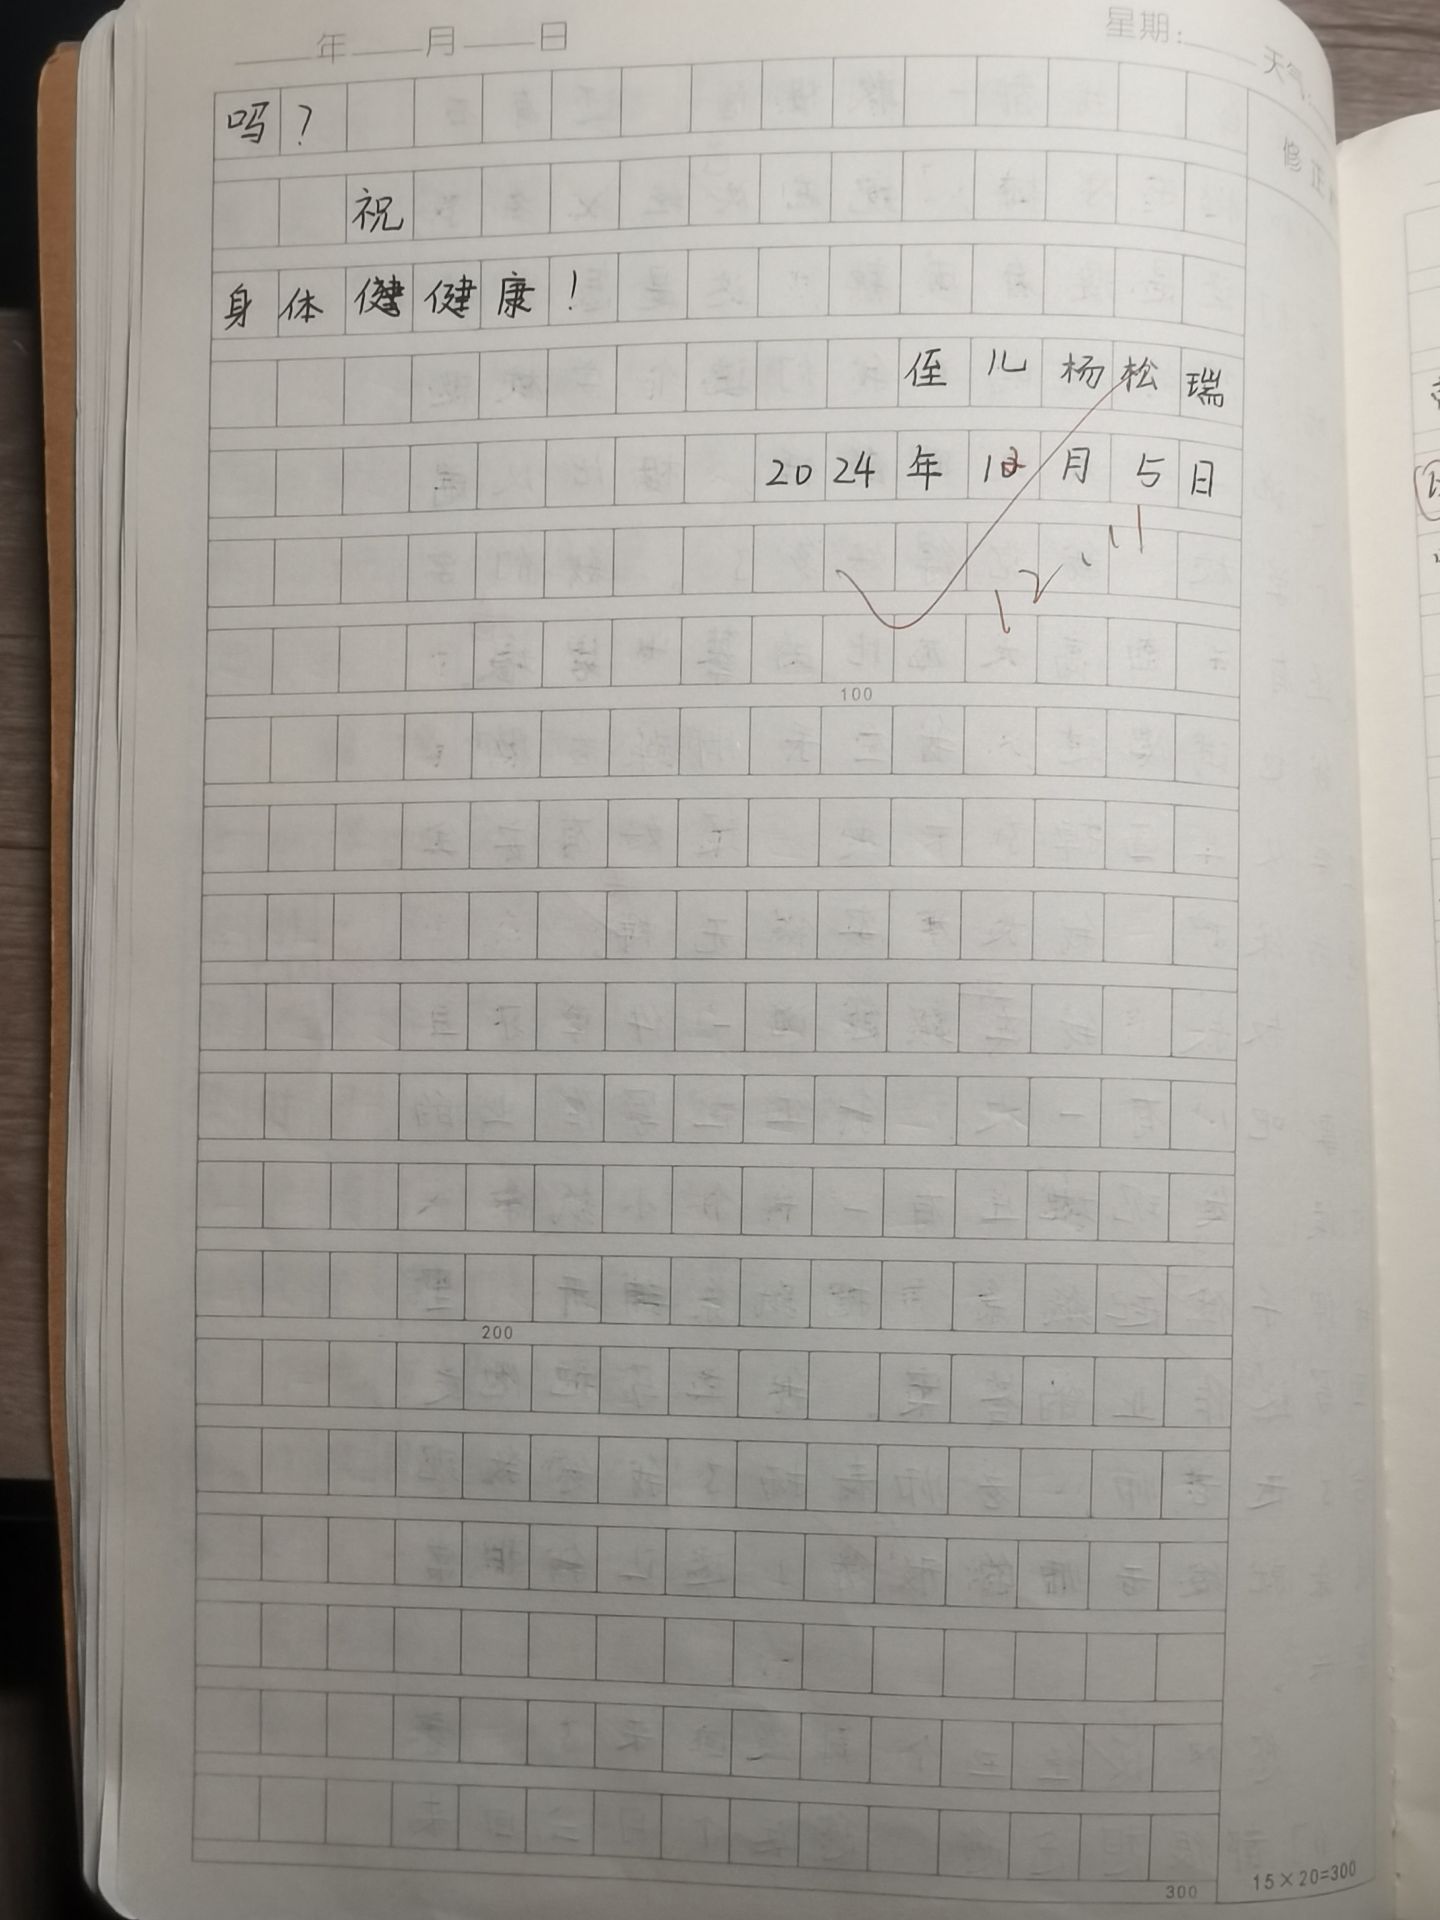 年 月 日 星期: 天气:
修正
吗?
祝
身体健健康!
侄儿杨松瑞
2024年12月5日
12.11
100
200
300
15×20=300